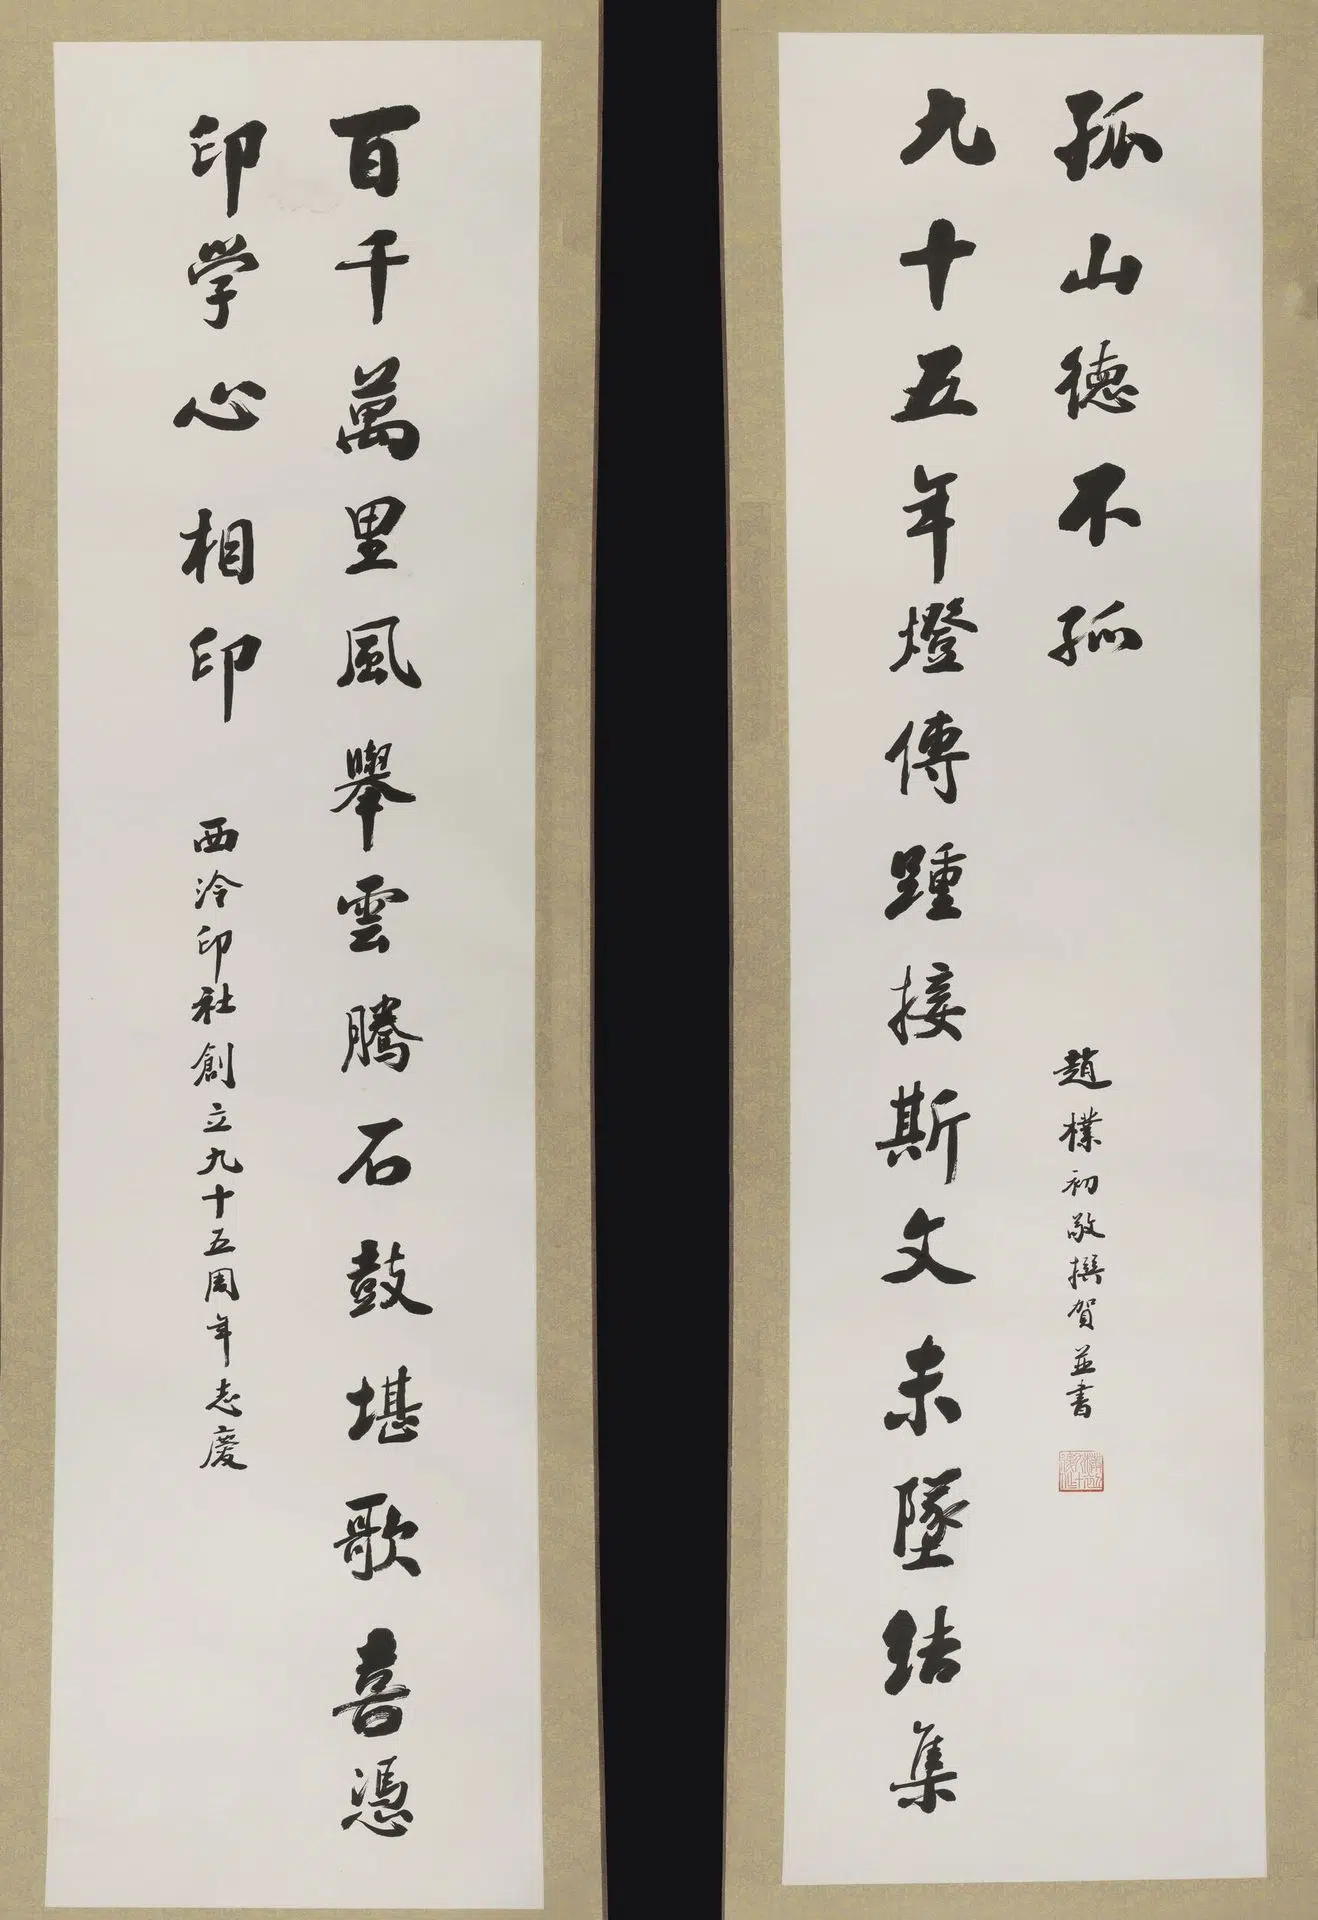 百千萬里風舉雲騰石鼓堪歌喜憑
印学心相印
西泠印社創立九十五周年志慶
九十五年燈傳踵接斯文未墜結集
孤山德不孤
趙樸初敬撰賀並書